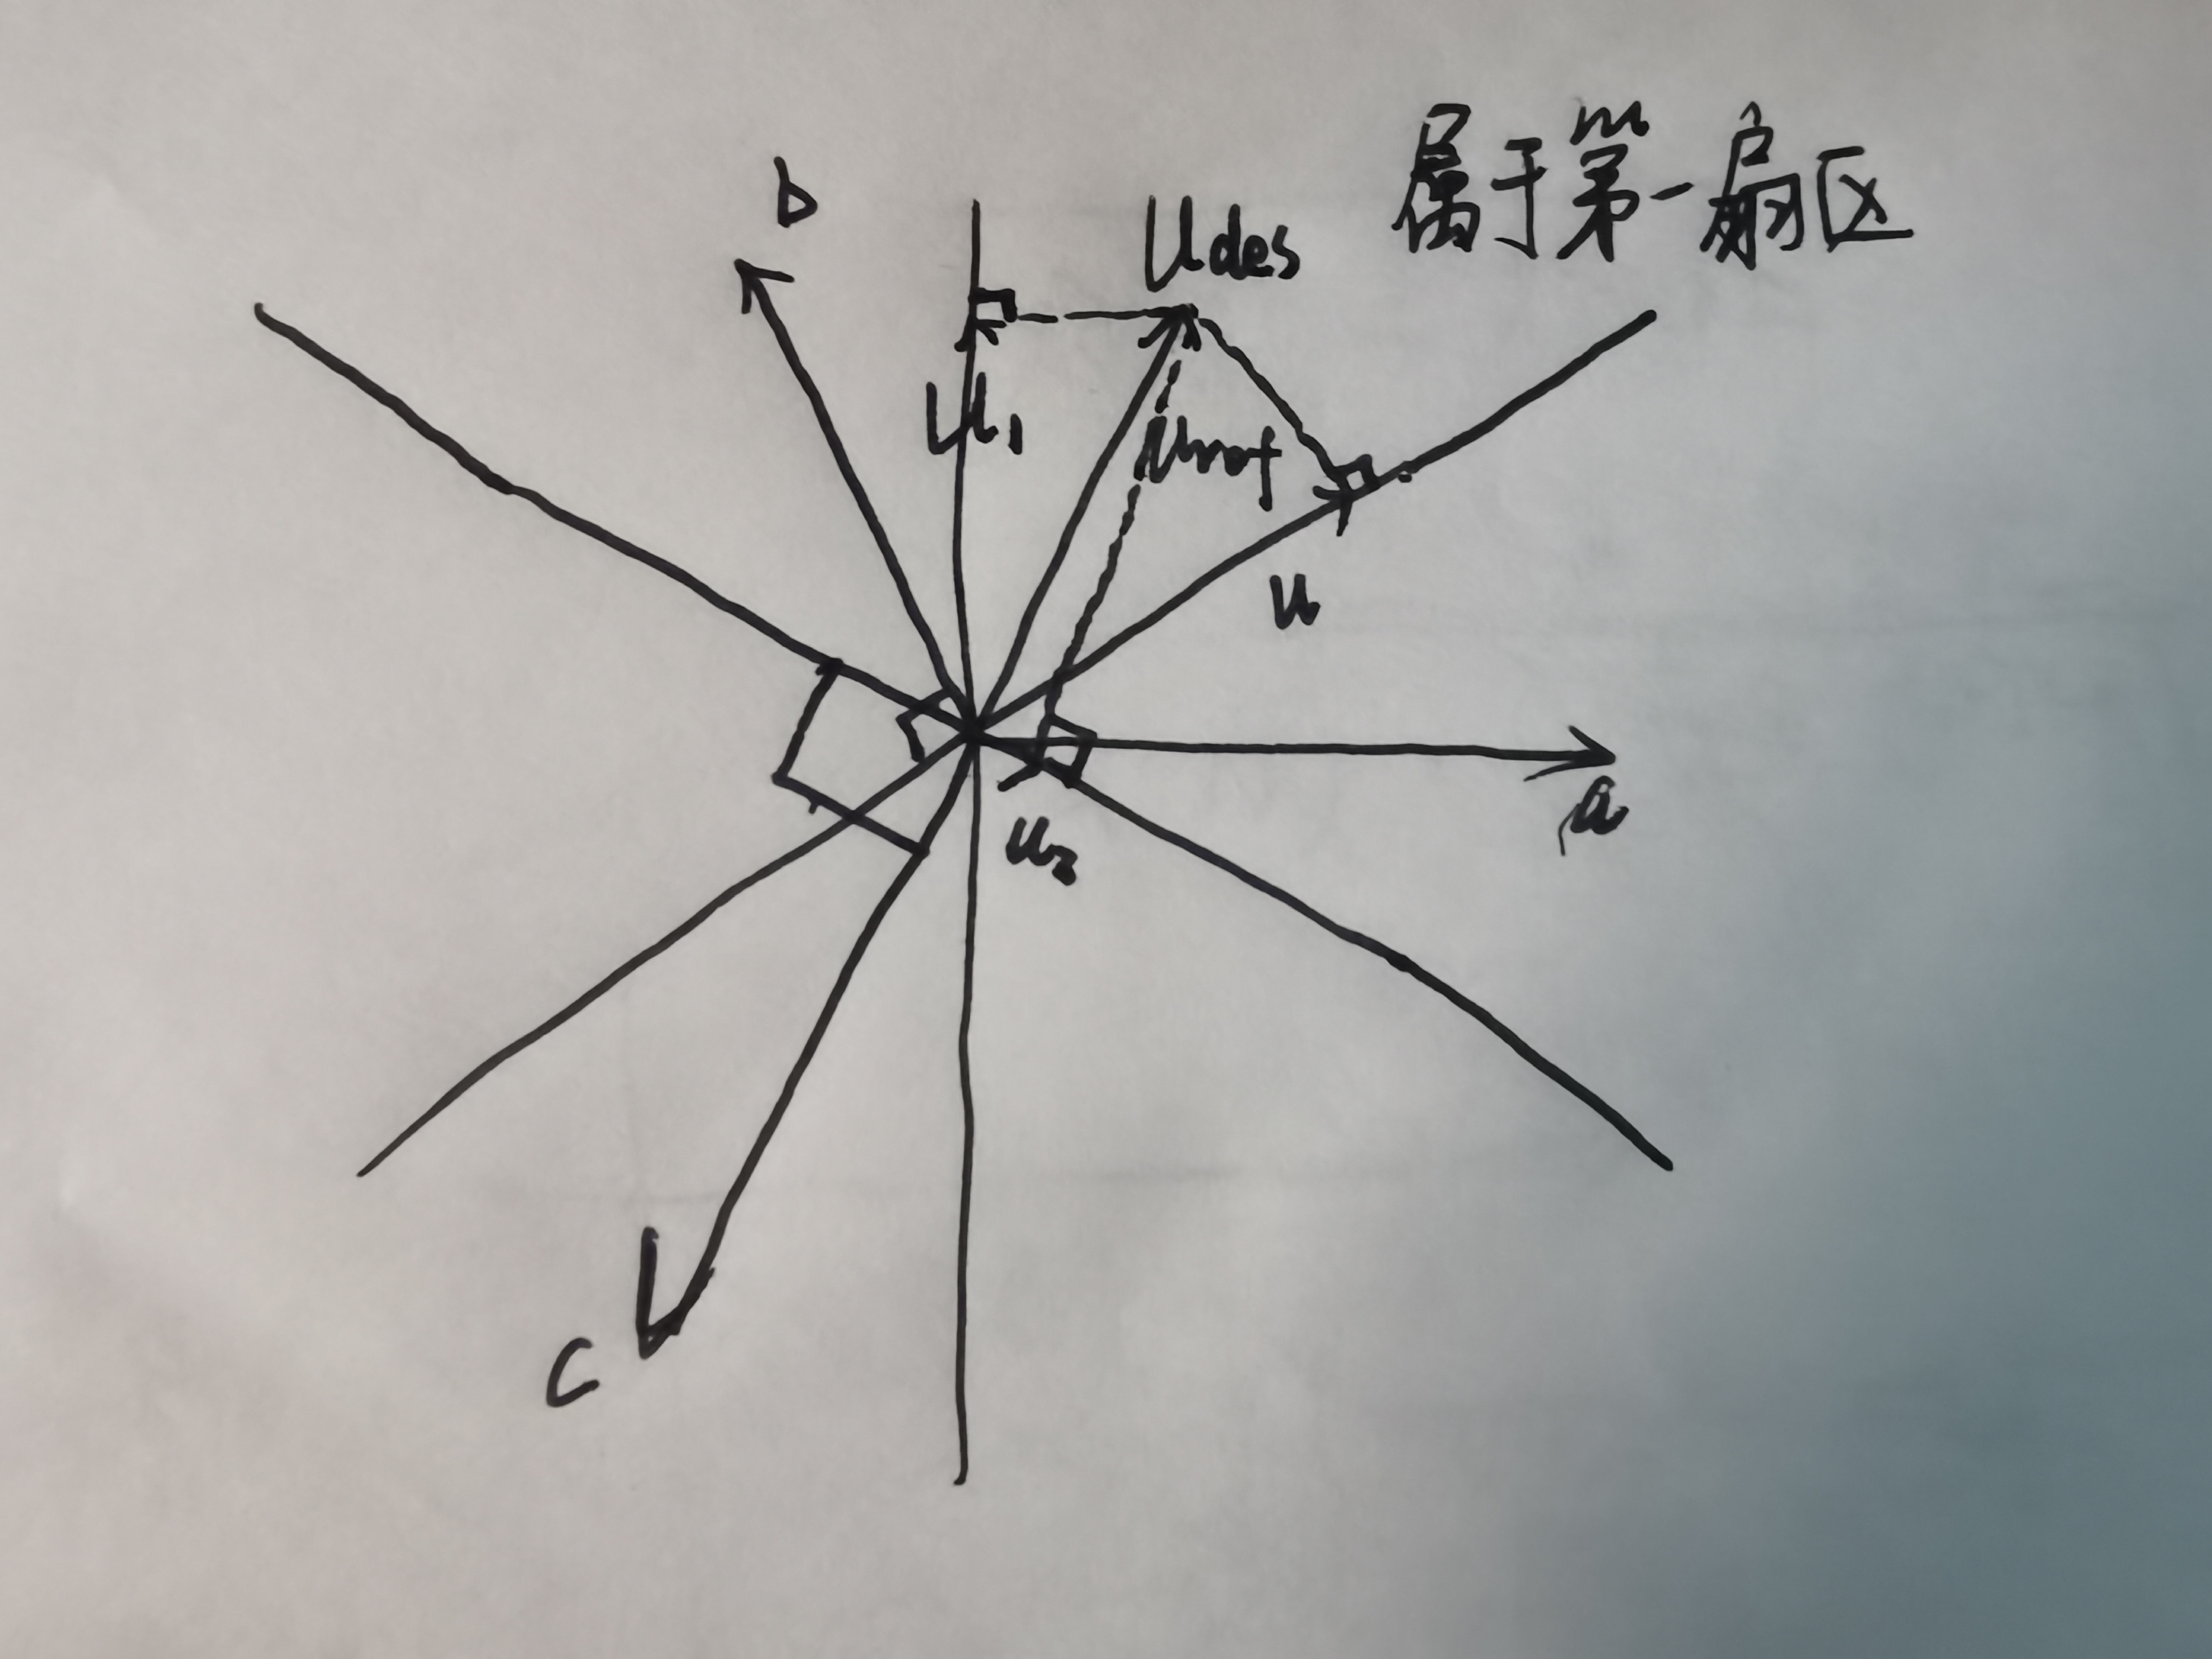 属于第一扇区
b
Udes
U1
Uref
U
a
U2
c